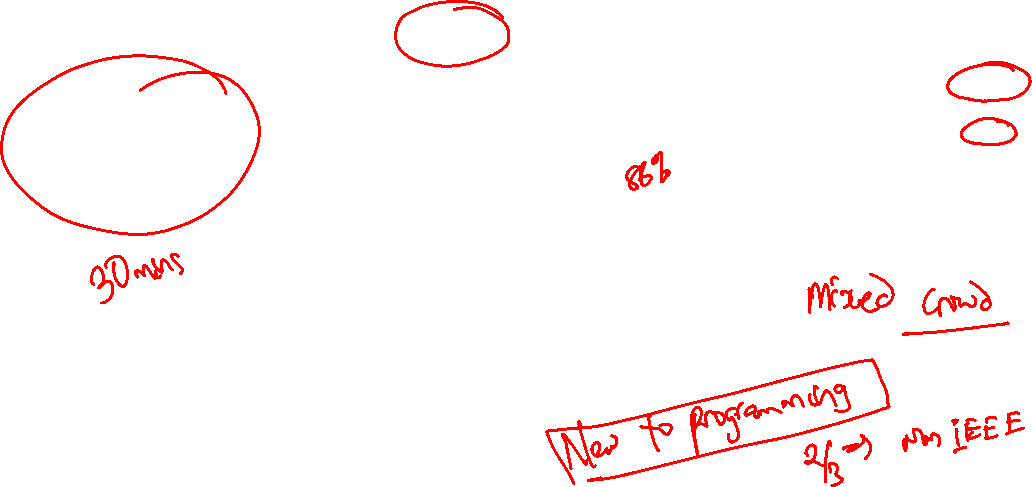 86%
30 mins
Mixed Crowd
New to programming
2/3 => non IEEE